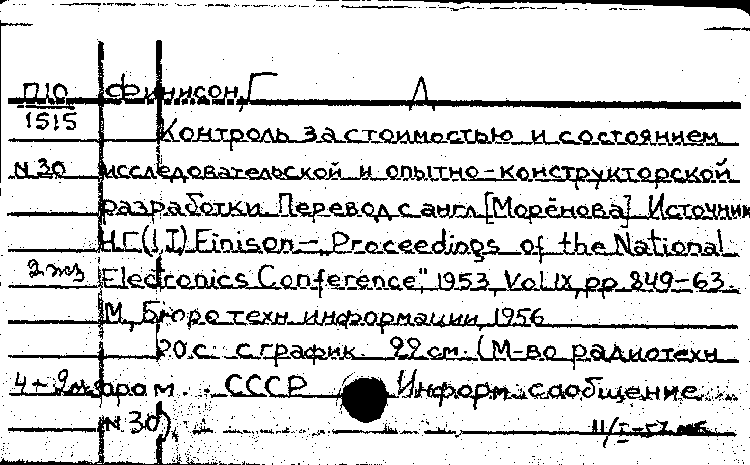 П10 Финисон, Г Д
1515 Контроль за стоимостью и состоянием
N 30 исследовательской и опытно-конструкторской
разработки. Перевод с англ [Морёнова] Источник
Н.Г.(I,I) Finison-„Proceedings of the National
2 экз Electronics Conference", 1953, Vol IX, pp 849-63.
М., Бюро техн информации, 1956
20 с. с график. 22 см. (М-во радиотехн
4+2 пром. СССР Информ. сообщение
N 30)
11/I-57